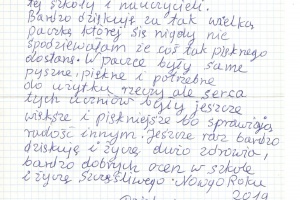 tej szkoły i nauczycieli.
Bardzo dziękuję za tak wielką
paczkę której się nigdy nie
spodziewałam że coś tak pięknego
dostanę. W paczce były same
pyszne, piękne i potrzebne
do użytku rzeczy ale serca
tych uczniów były jeszcze
większe i piękniejsze bo sprawiają
radość innym. Jeszcze raz bardzo
dziękuję i życzę dużo zdrowia,
bardzo dobrych ocen w szkole
i życzę Szczęśliwego Nowego Roku
2019